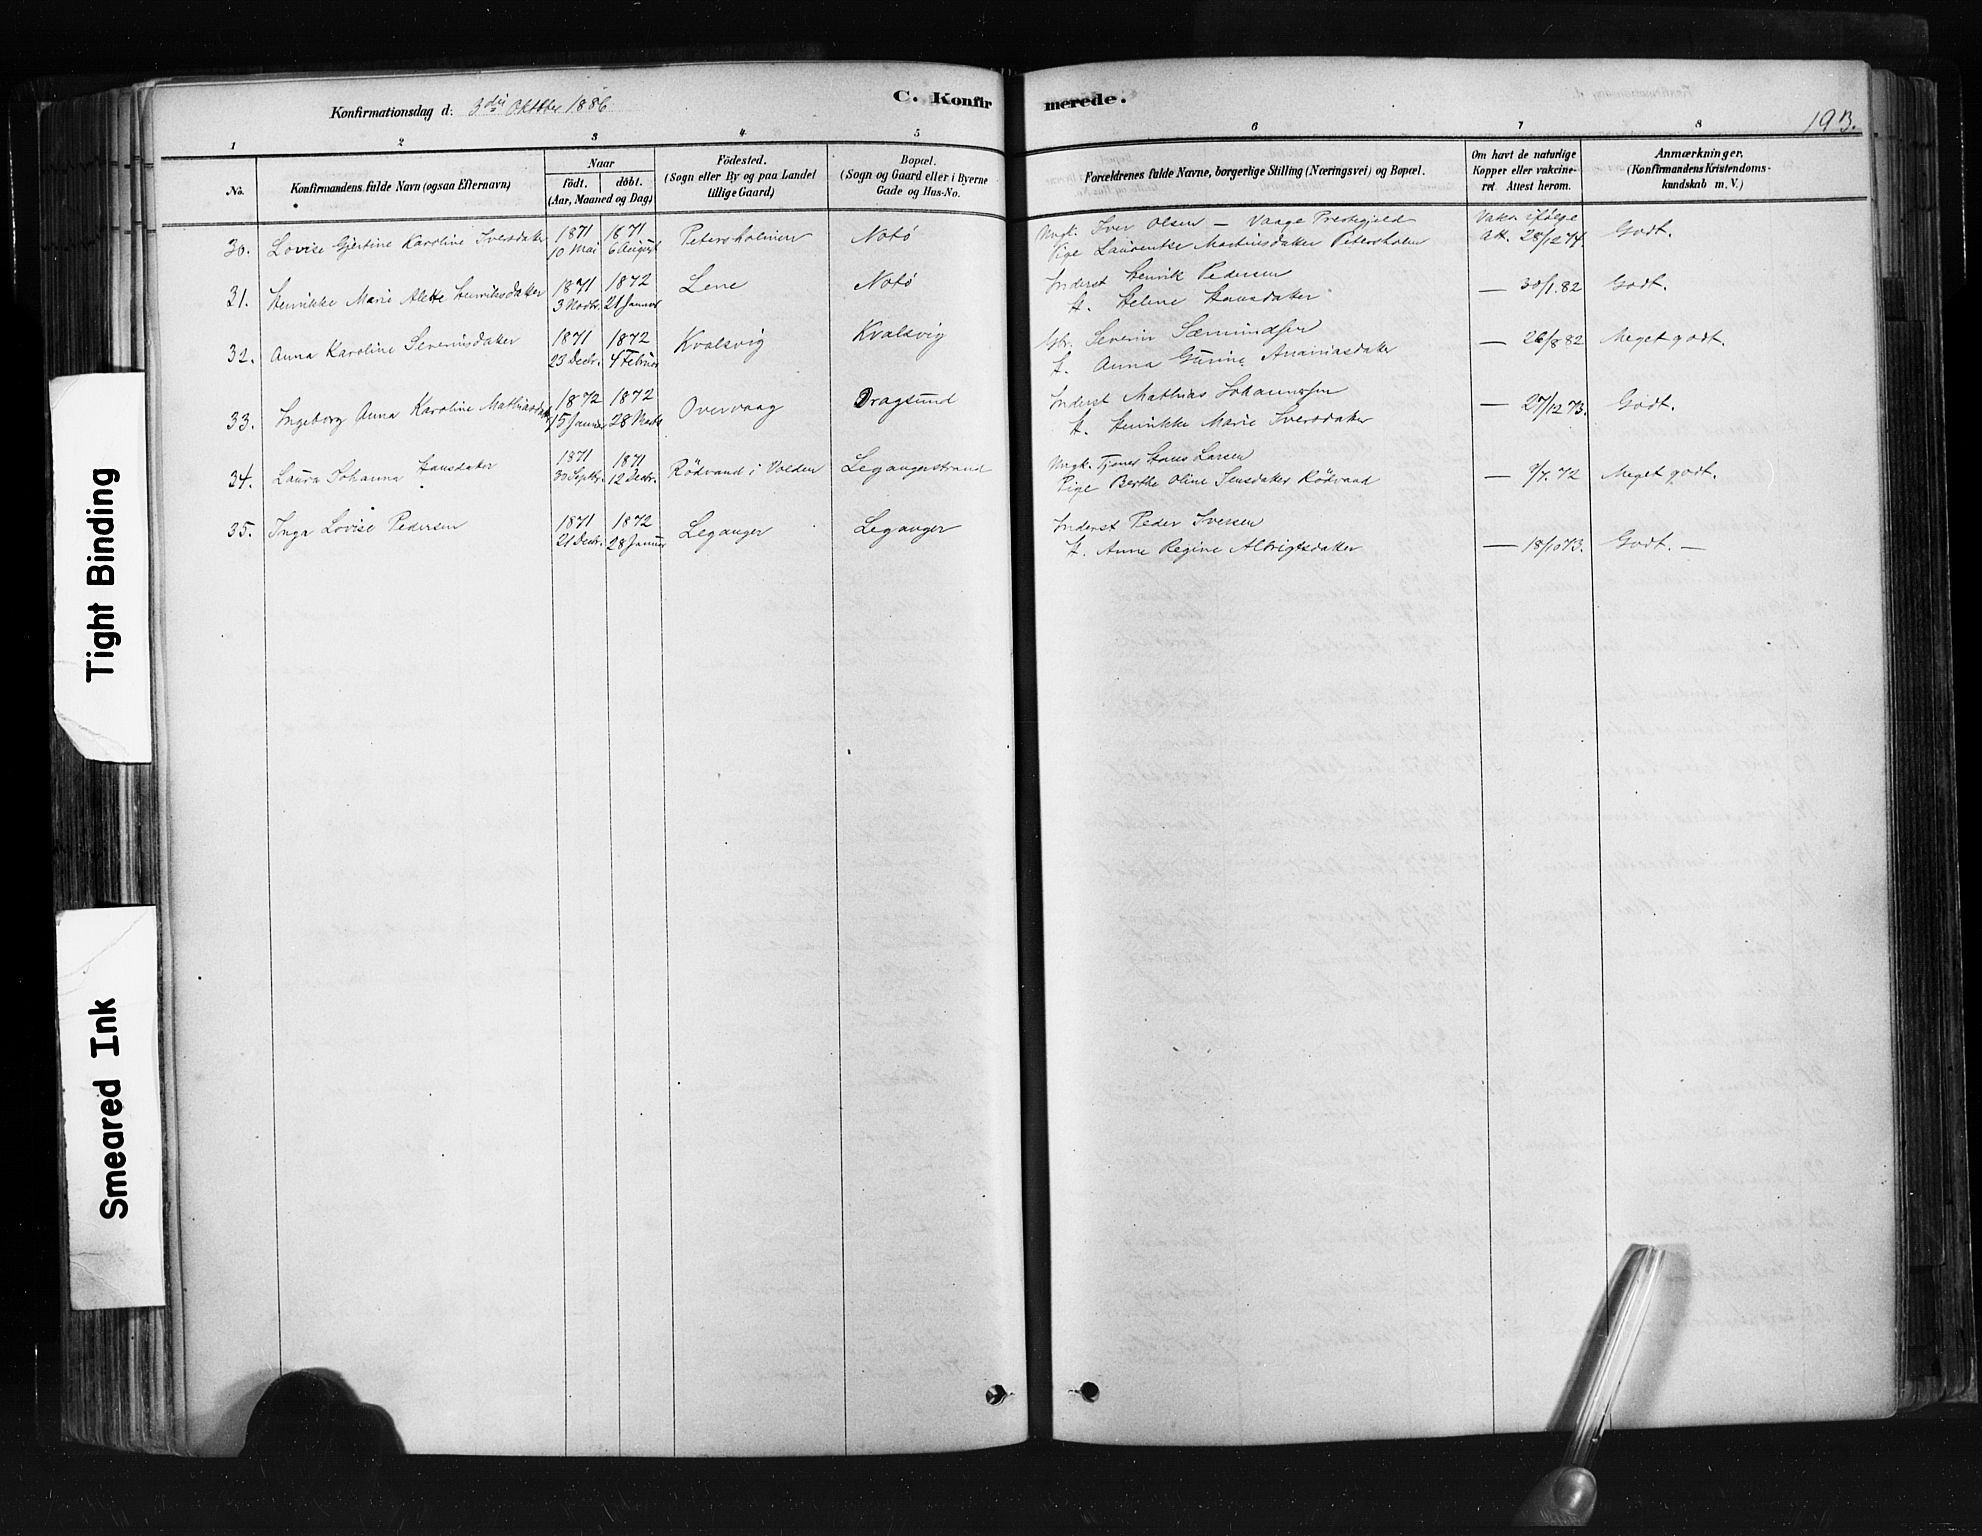 Konfirmationsdag d: 3die Oktober 1886
C. Konfirmerede.
193.
1 2 3 4 5 6 7 8
No. Konfirmandens fulde Navn (ogsaa Efternavn) Naar født. døbt. (Aar, Maaned og Dag) Fødested. (Sogn eller By og paa Landet tillige Gaard) Bopæl. (Sogn og Gaard eller i Byerne Gade og Hus-No. Forældrenes fulde Navne, borgerlige Stilling (Næringsvei) og Bopæl. Om havt de naturlige Kopper eller vakcineret. Attest herom. Anmærkninger. (Konfirmandens Kristendomskundskab m. V.)
30. Lovise Gjertine Karoline Iversdatter 1871 10 Mai 1871 6 August Petersholmen Notø Ungk. Iver Olsen — Vaage Prestegjeld
Pige Laurentse Martinsdatter Petersholm Vakc. ifølge Att. 28/12 74. Godt.
31. Henrikke Marie Alette Henriksdatter 1871 3 Novbr. 1872 21 Januar Lene Notø Inderst Henrik Pedersen
H. Helene Hansdatter — 30/1. 82 Godt.
32. Anna Karoline Severinsdatter 1871 23 Decbr. 1872 4 Februar Kvalsvig Kvalsvig Gbr. Severin Sæmundsen
H. Anna Gurine Ananiasdatter — 26/8 82 Meget godt.
33. Ingeborg Anna Karoline Mathiasdatt 1872 15 Januar 1872 28 Overvaag Dragsund Inderst Mathias Johannessen
H. Henrikke Marie Iversdatter — 27/12 73. Godt.
34. Laura Johanna Hansdatter 1871 30 Septbr. 1871 12 Decbr. Rødvand i Volden Legangerstrand Ungk. Tjener Hans Larsen
Pige Berthe Oline Jensdatter Rødvand — 9/7. 72 Meget godt.
35. Inga Lovise Pedersen 1871 21 Decbr. 1872 28 Januar Leganger Leganger Inderst Peder Iversen
H. Anne Regine Albrigtsdatter — 18/10 73. Godt. —
Tight Binding
Smeared Ink